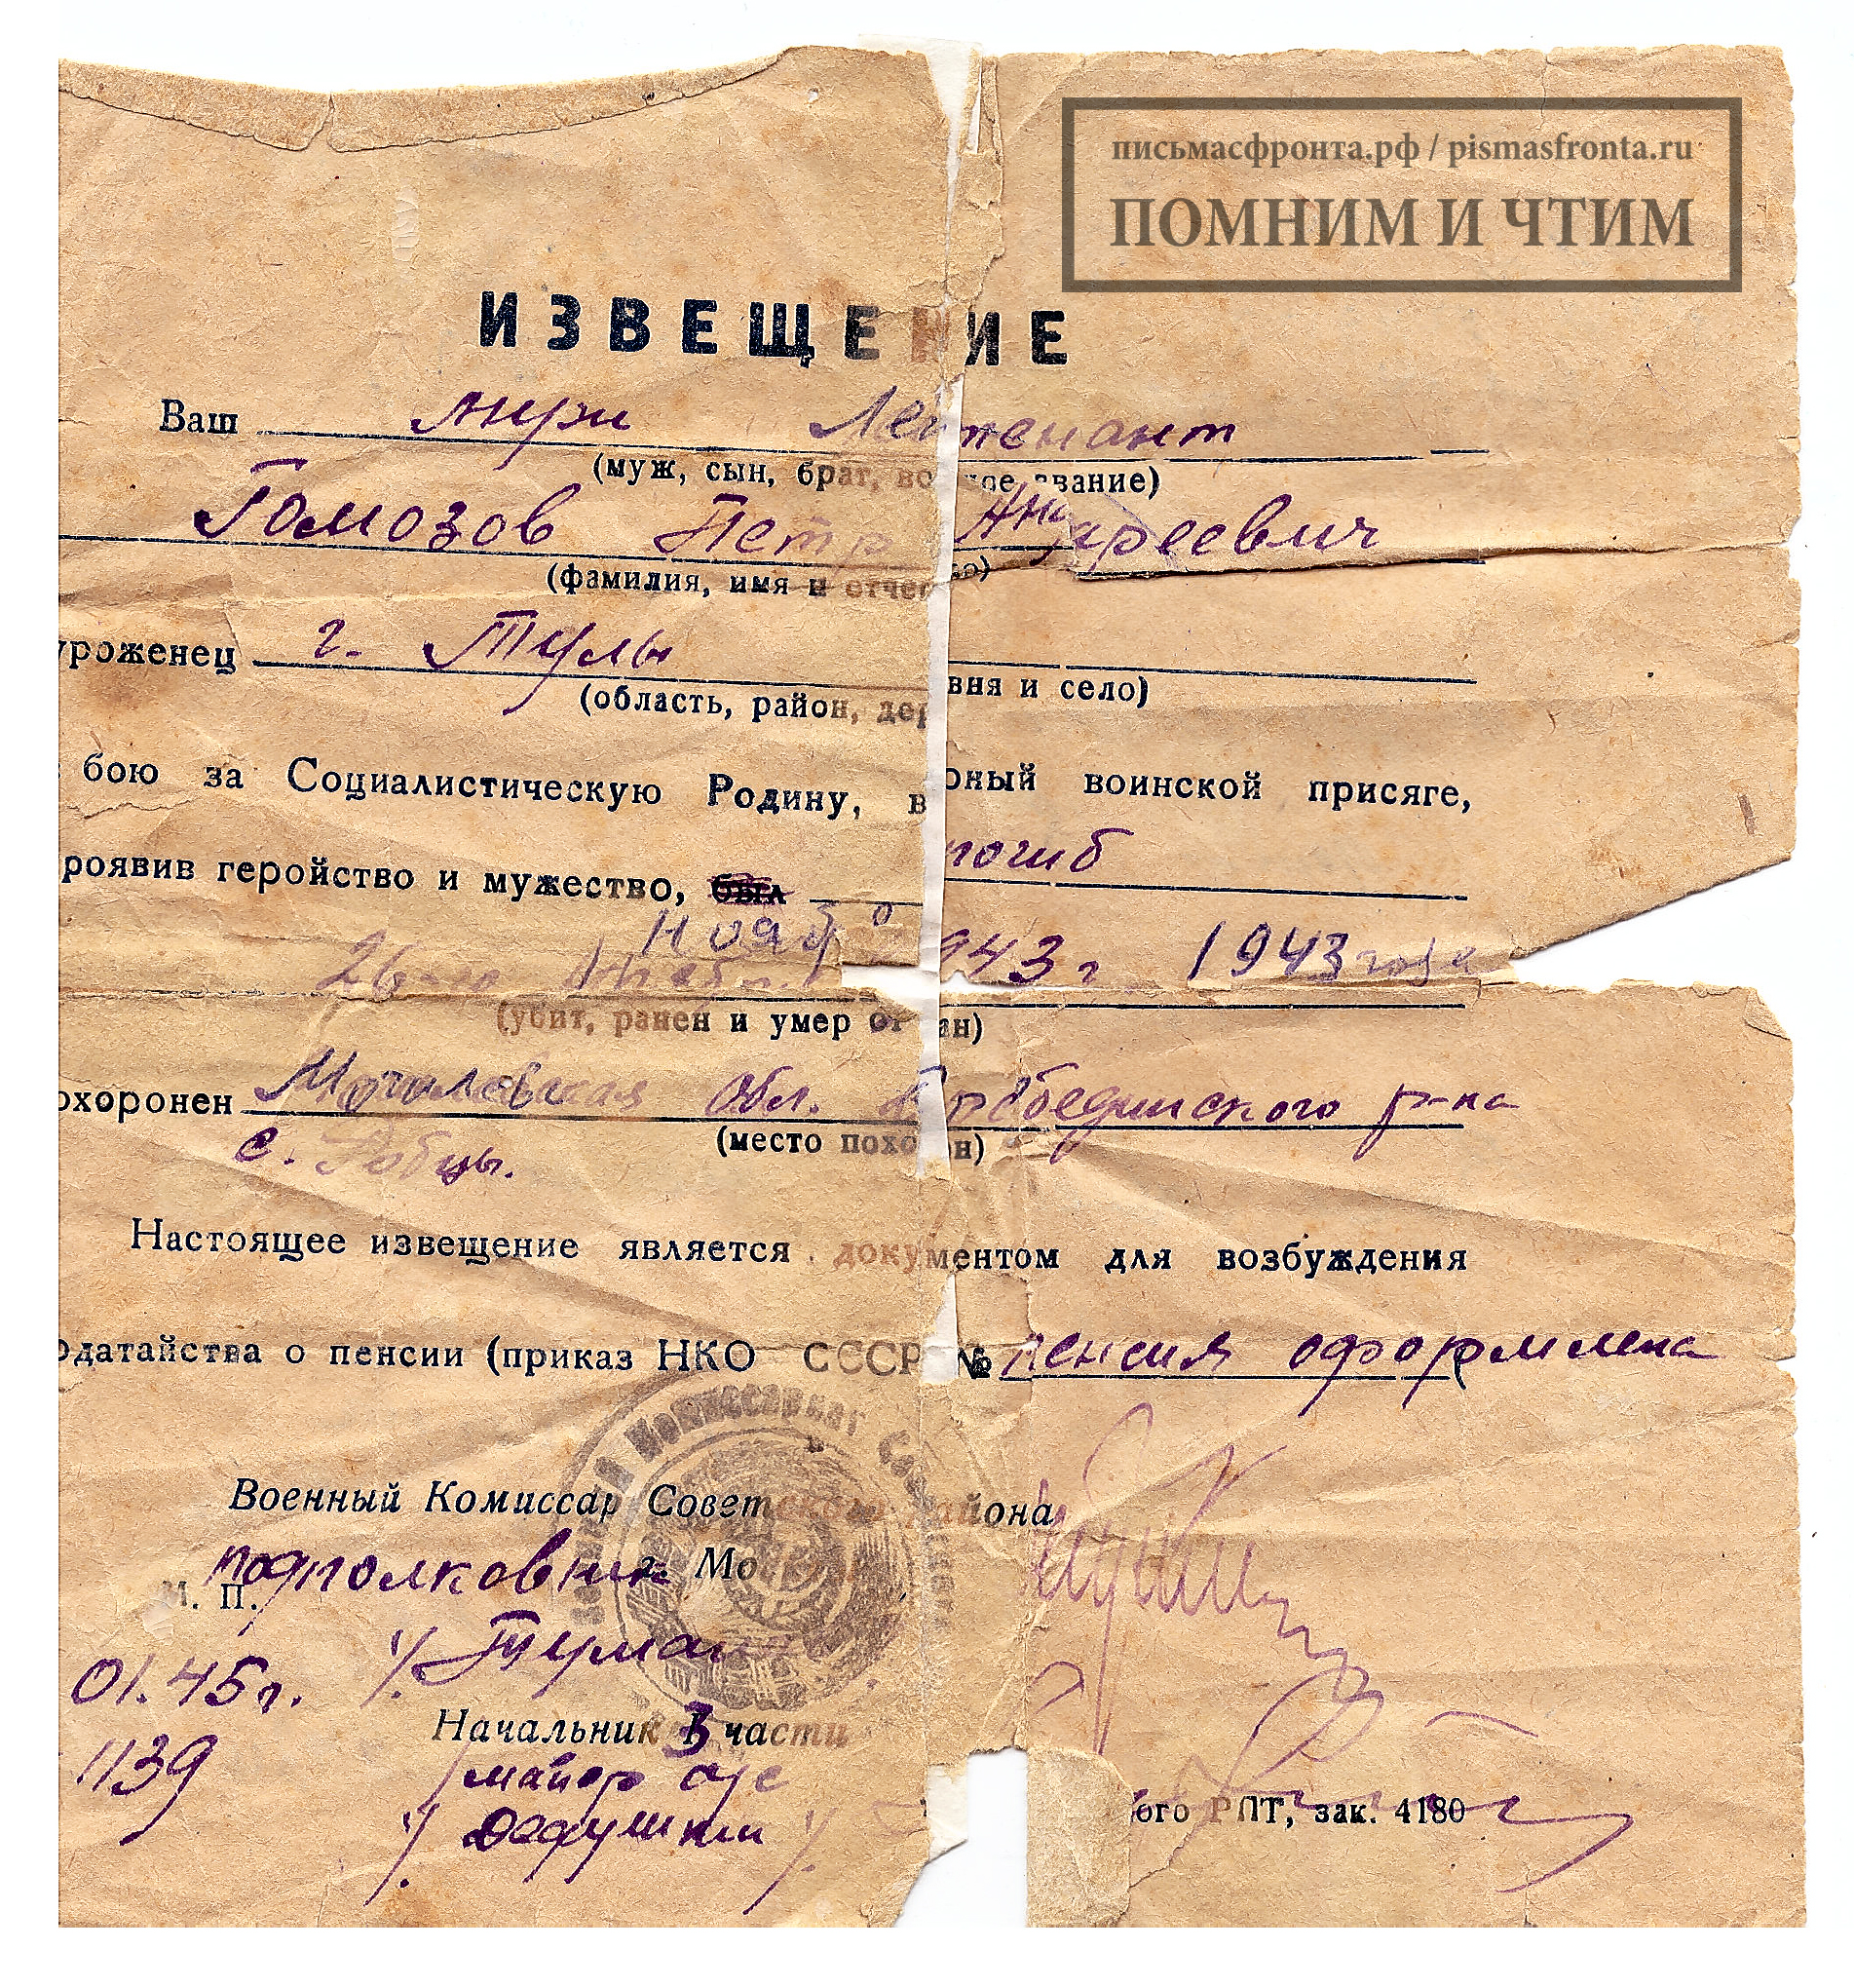 письмасфронта.рф / pismasfronta.ru
ПОМНИМ И ЧТИМ
ИЗВЕЩЕНИЕ
Ваш муж Лейтенант
(муж, сын, брат, во ное звание)
Гомозов Петр Андреевич
(фамилия, имя и отчес во)
уроженец г. Тулы
(область, район, дер вня и село)
бою за Социалистическую Родину, в рный воинской присяге,
роявив геройство и мужество, был погиб
нояб
26-го 943 г 1943 года
(убит, ранен и умер от ан)
охоронен Могилевская обл. р-на
(место похо н)
с.
Настоящее извещение является документом для возбуждения
одатайства о пенсии (приказ НКО СССР № пенсия оформлена
Военный Комиссариат
Военный Комиссар Советского района
подполковник г. Мо
М. П.
/Туман
01.45г.
Начальник 3 части
1139
майор а/с
/Дедушкин/
ого РПТ, зак. 4180